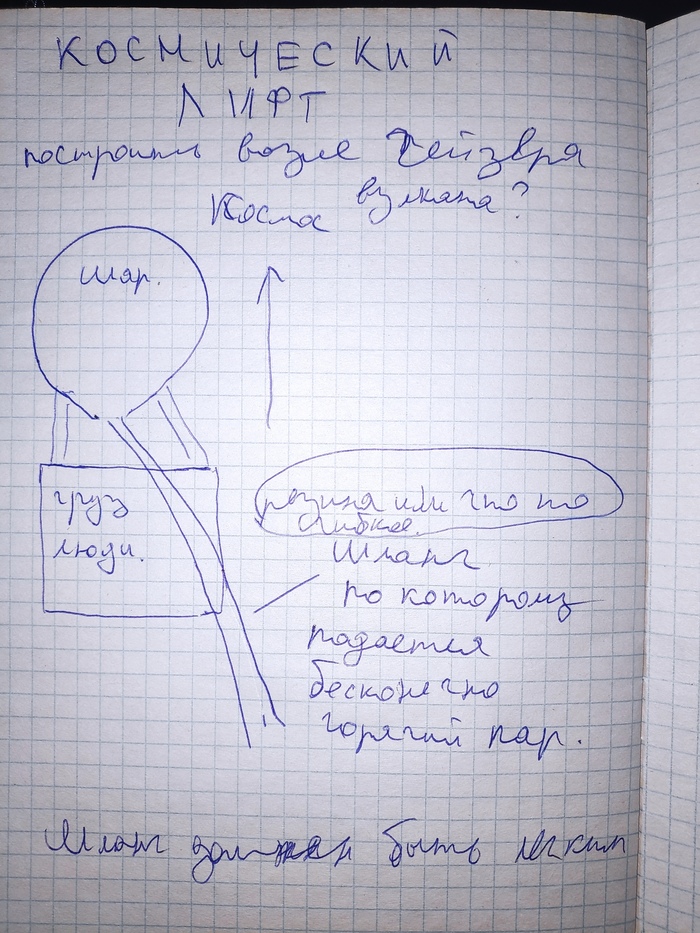 КОСМИЧЕСКИЙ
ЛИФТ
построить возле Гейзера
вулкана?
Космос
Шар.
груз
люди.
резина или что то
гибкое.
Шланг
по которому
подается
бесконечно
горячий пар.
Шланг должен быть легким